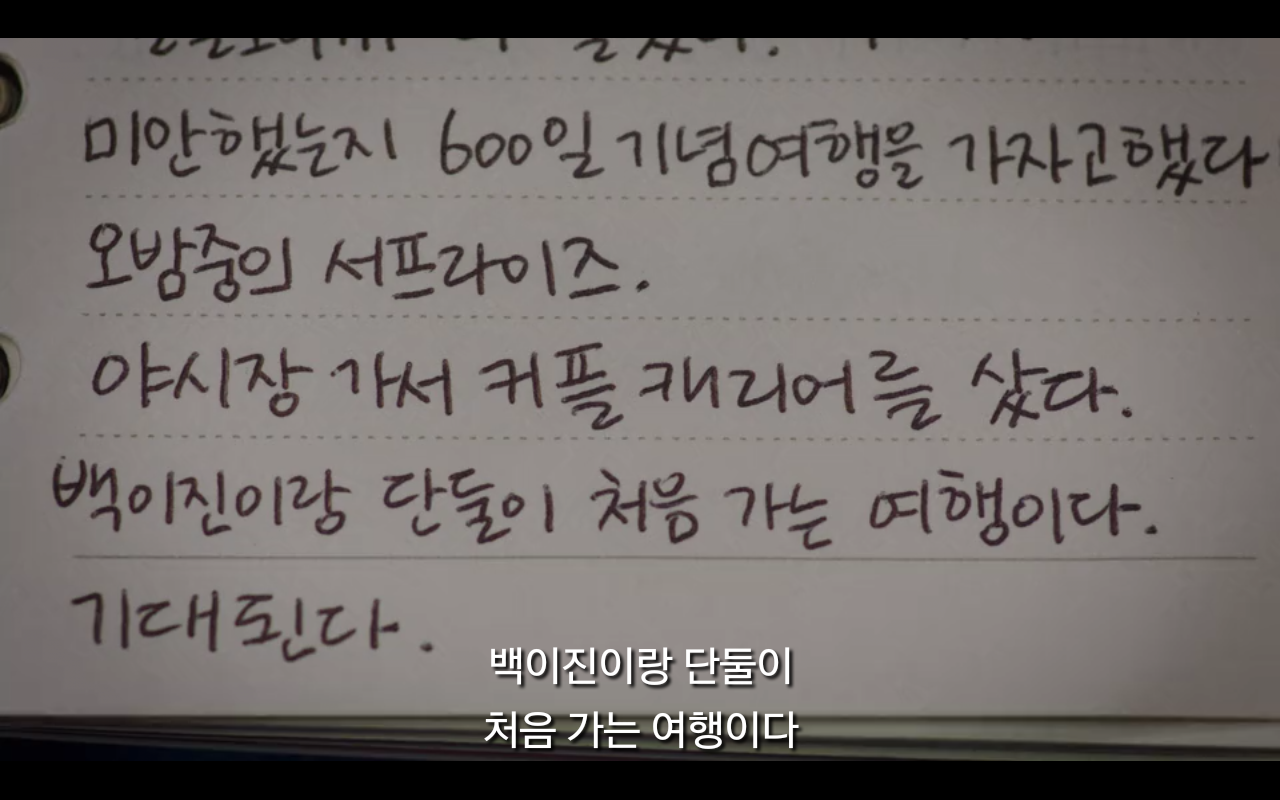 미안했는지 600일 기념여행을 가자고했다
오밤중의 서프라이즈.
야시장 가서 커플 캐리어를 샀다.
백이진이랑 단둘이 처음 가는 여행이다.
기대된다.
백이진이랑 단둘이
처음 가는 여행이다